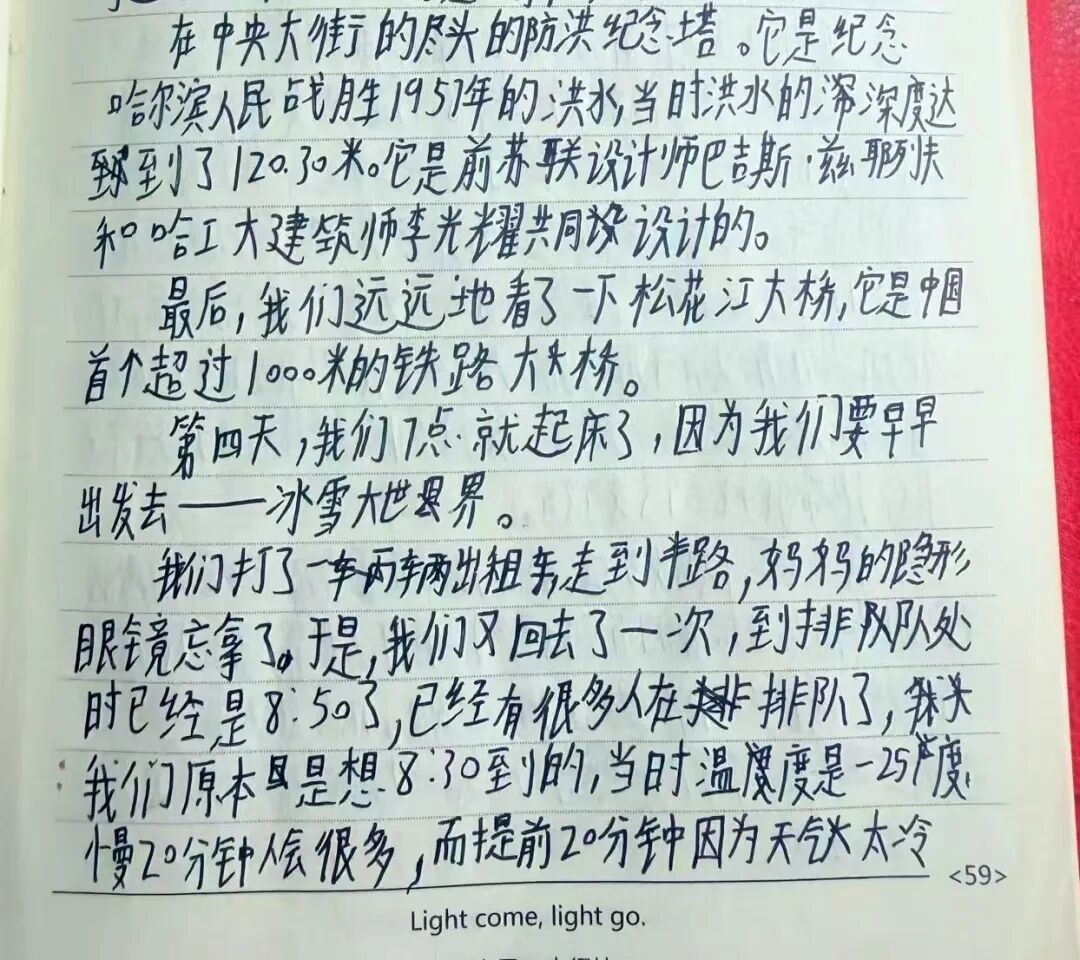 在中央大街的尽头的防洪纪念塔。它是纪念
哈尔滨人民战胜1957年的洪水,当时洪水的深度达
到了120.30米。它是前苏联设计师巴吉斯·兹耶列夫
和哈工大建筑师李光耀共同设计的。
最后,我们远远地看了一下松花江大桥,它是中国
首个超过1000米的铁路大桥。
第四天,我们7点就起床了,因为我们要早早
出发去——冰雪大世界。
我们打了两辆出租车,走到半路,妈妈的隐形
眼镜忘拿了。于是,我们又回去了一次,到排队处
时已经是8:50了,已经有很多人在排队了,
我们原本是想8:30到的,当时温度是-25度,
慢20分钟人会很多,而提前20分钟因为天气太冷
<59>
Light come, light go.